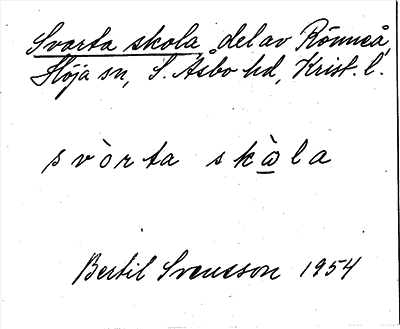 Svarta skola, del av Rönneå,
Höja sn, S. Åsbo hd, Krist. l.
svòrta skàla
Bertil Svensson 1954